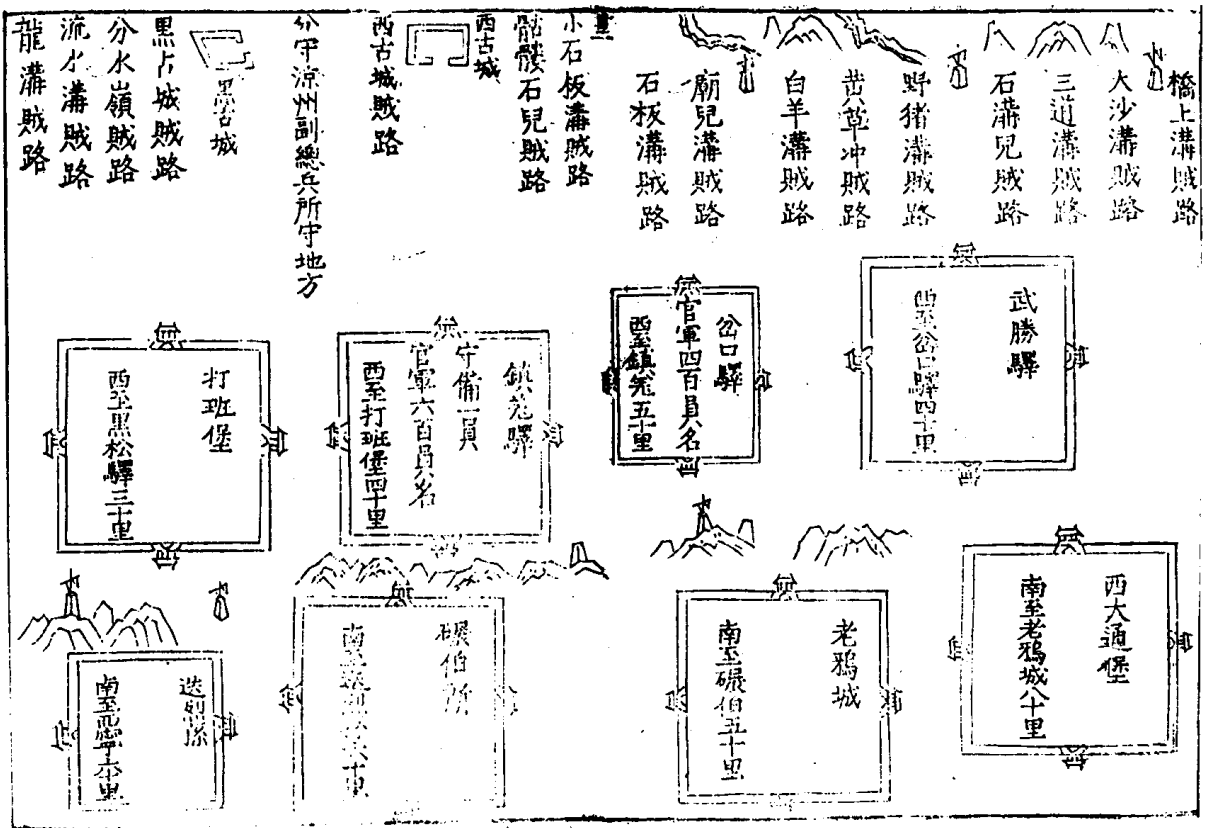 橋上溝賊路
大沙溝賊路
三道溝賊路
石溝兒賊路
野猪溝賊路
黄草冲賊路
白羊溝賊路
廟兒溝賊路
石板溝賊路
小石板溝賊路
骷髏石兒賊路
西古城
西古城賊路
分守涼州副總兵所守地方
黑古城
黑占城賊路
分水嶺賊路
流水溝賊路
龍溝賊路
武勝驛
西至岔口驛四十里
岔口驛
官軍四百員名
西至鎮羌五十里
鎮羌驛
守備一員
官軍六百員名
西至打班堡四十里
打班堡
西至黑松驛三十里
西大通堡
南至老鴉城八十里
老鴉城
南至碾伯五十里
碾伯所
南至迭烈孫六十里
迭烈孫
南至西寧六十里